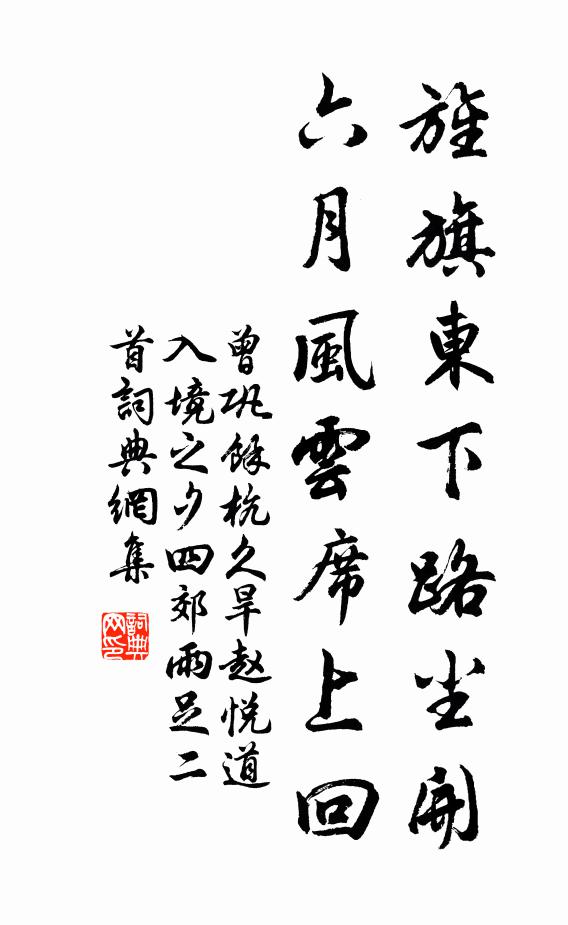 旌旗東下路尘開
六月風雲席上回
曾巩餘杭久旱赵悅道
入境之夕四郊雨足二
首詞典網集
詞典
网印